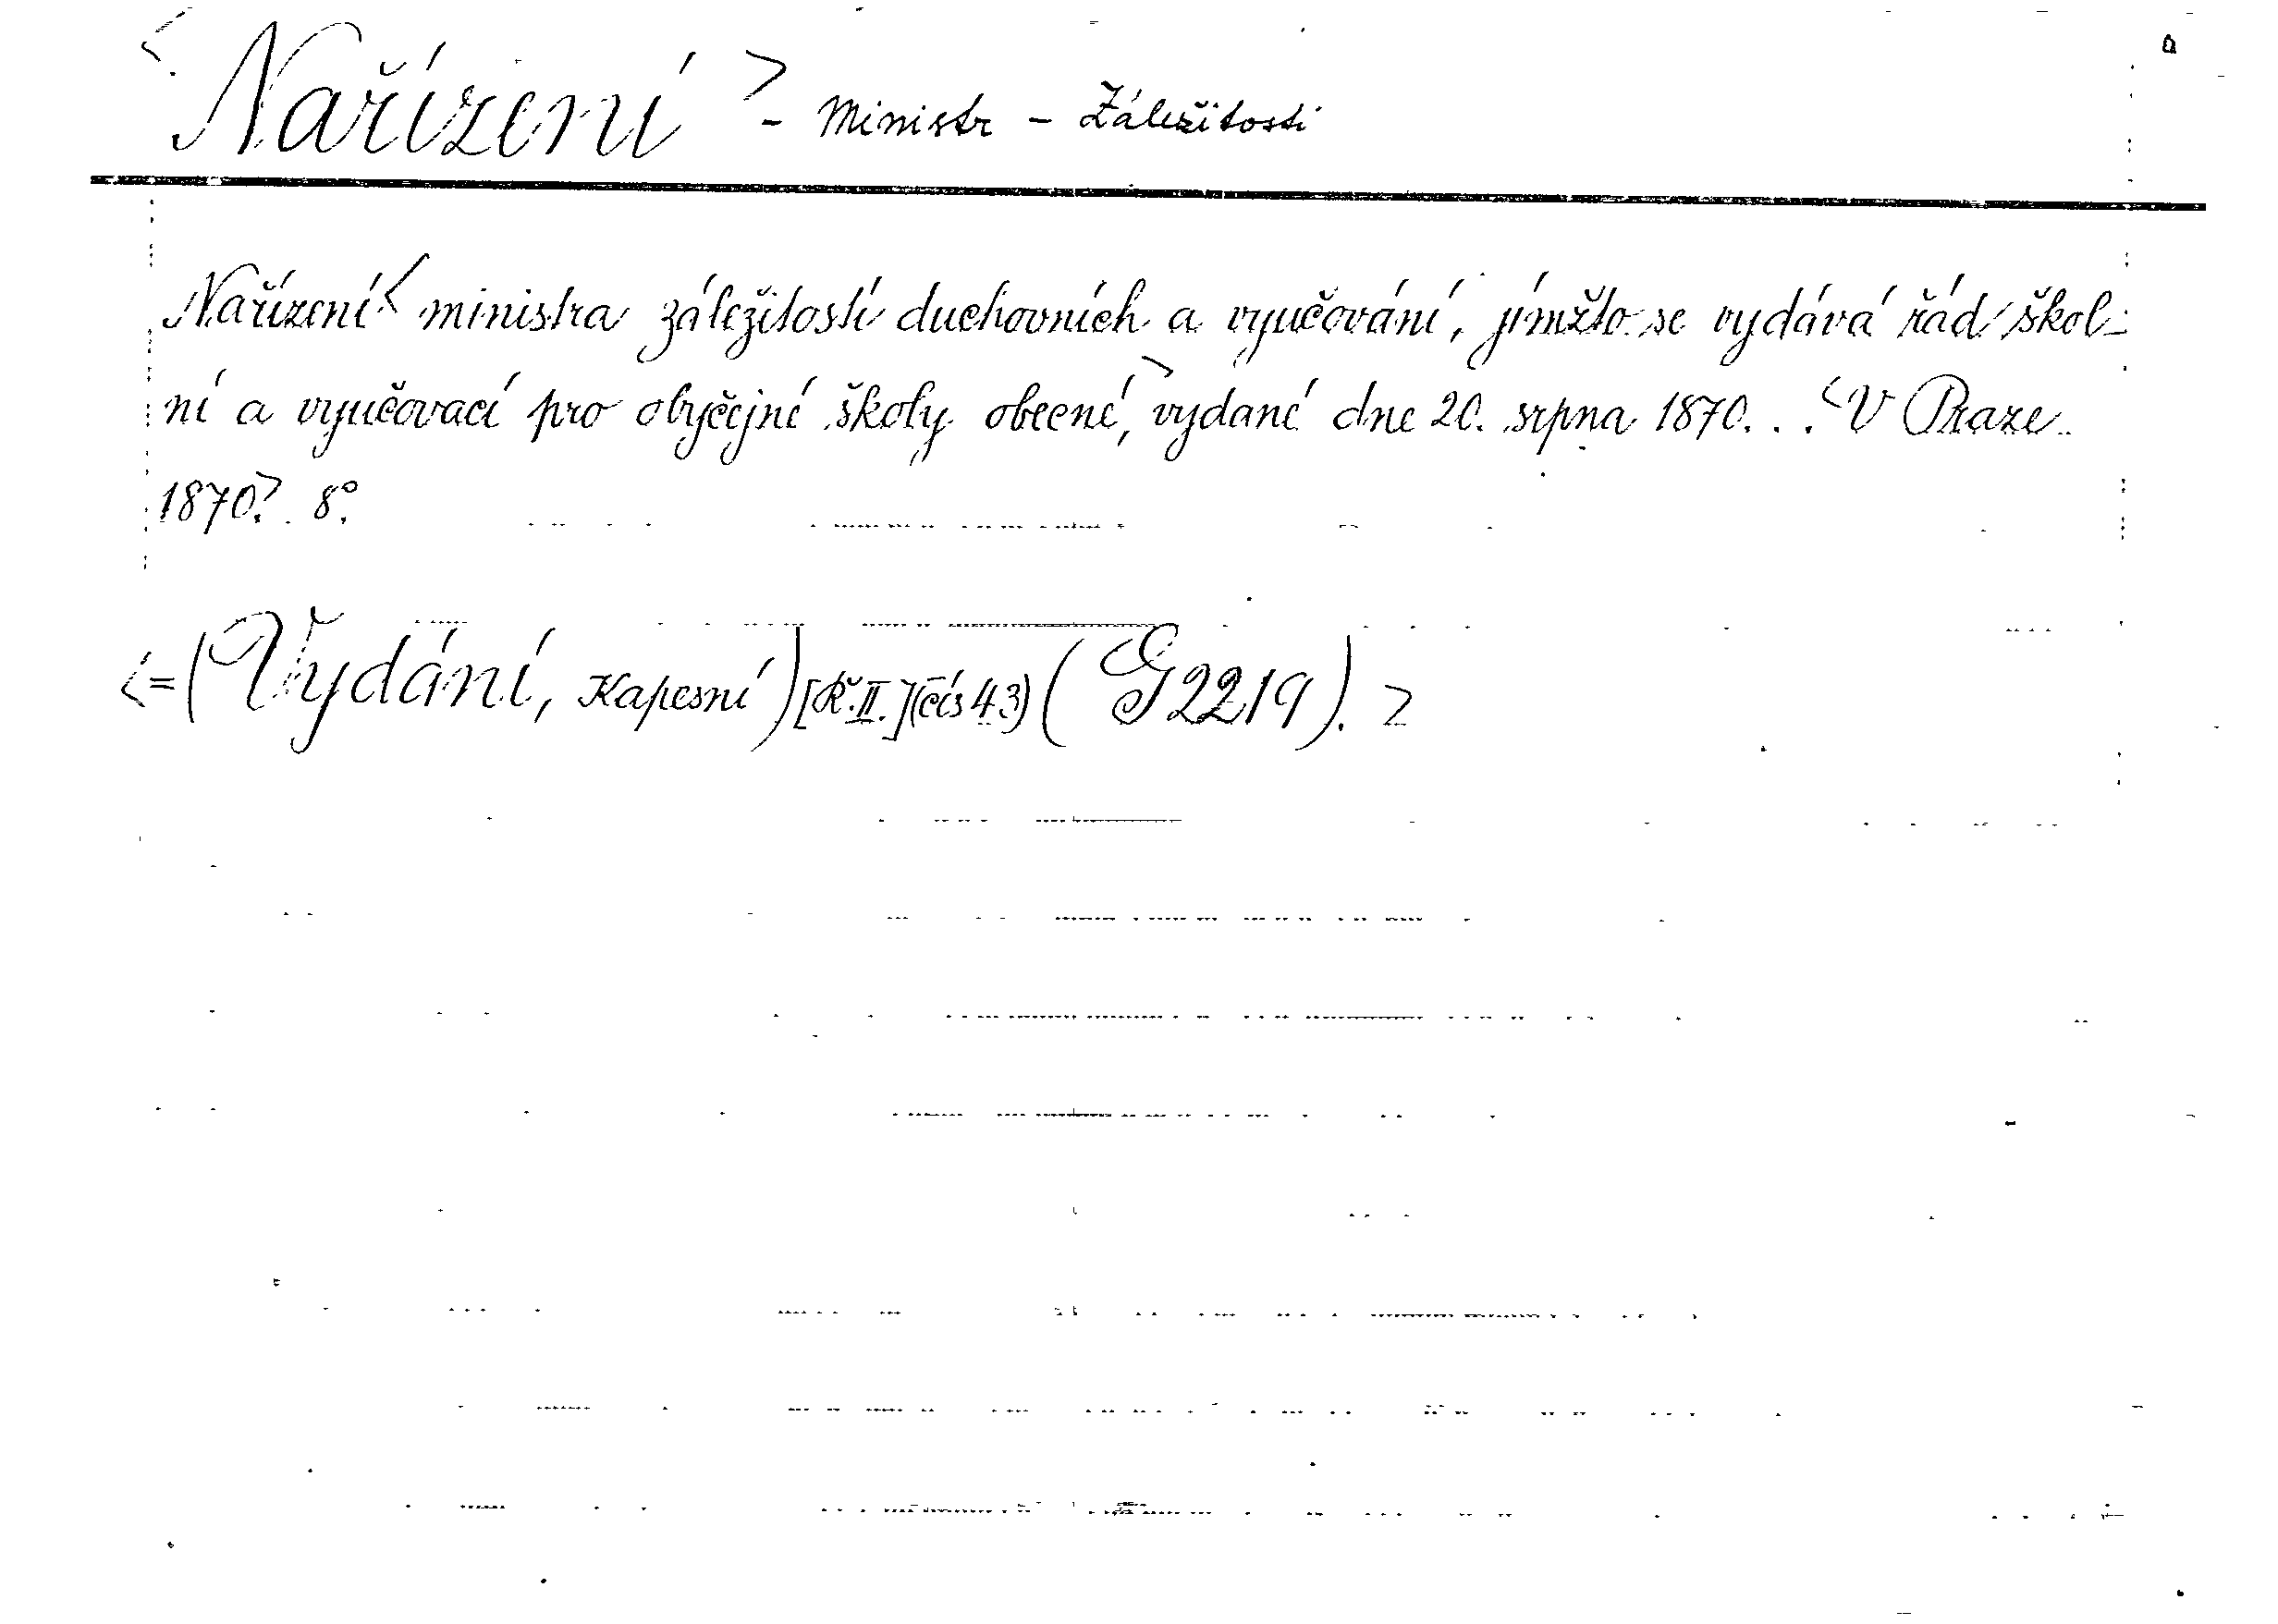 <Nařízení> - Ministr - Záležitosti
Nařízení< ministra záležitostí duchovních a vyučování, jímžto se vydává řád škol-
ní a vyučovací pro obyčejné školy obecné,> vydané dne 20. srpna 1870... <V Praze
1870>. 8°.
<=(Vydání, Kapesní)[Ř.II.](čís 43)(G2219).>